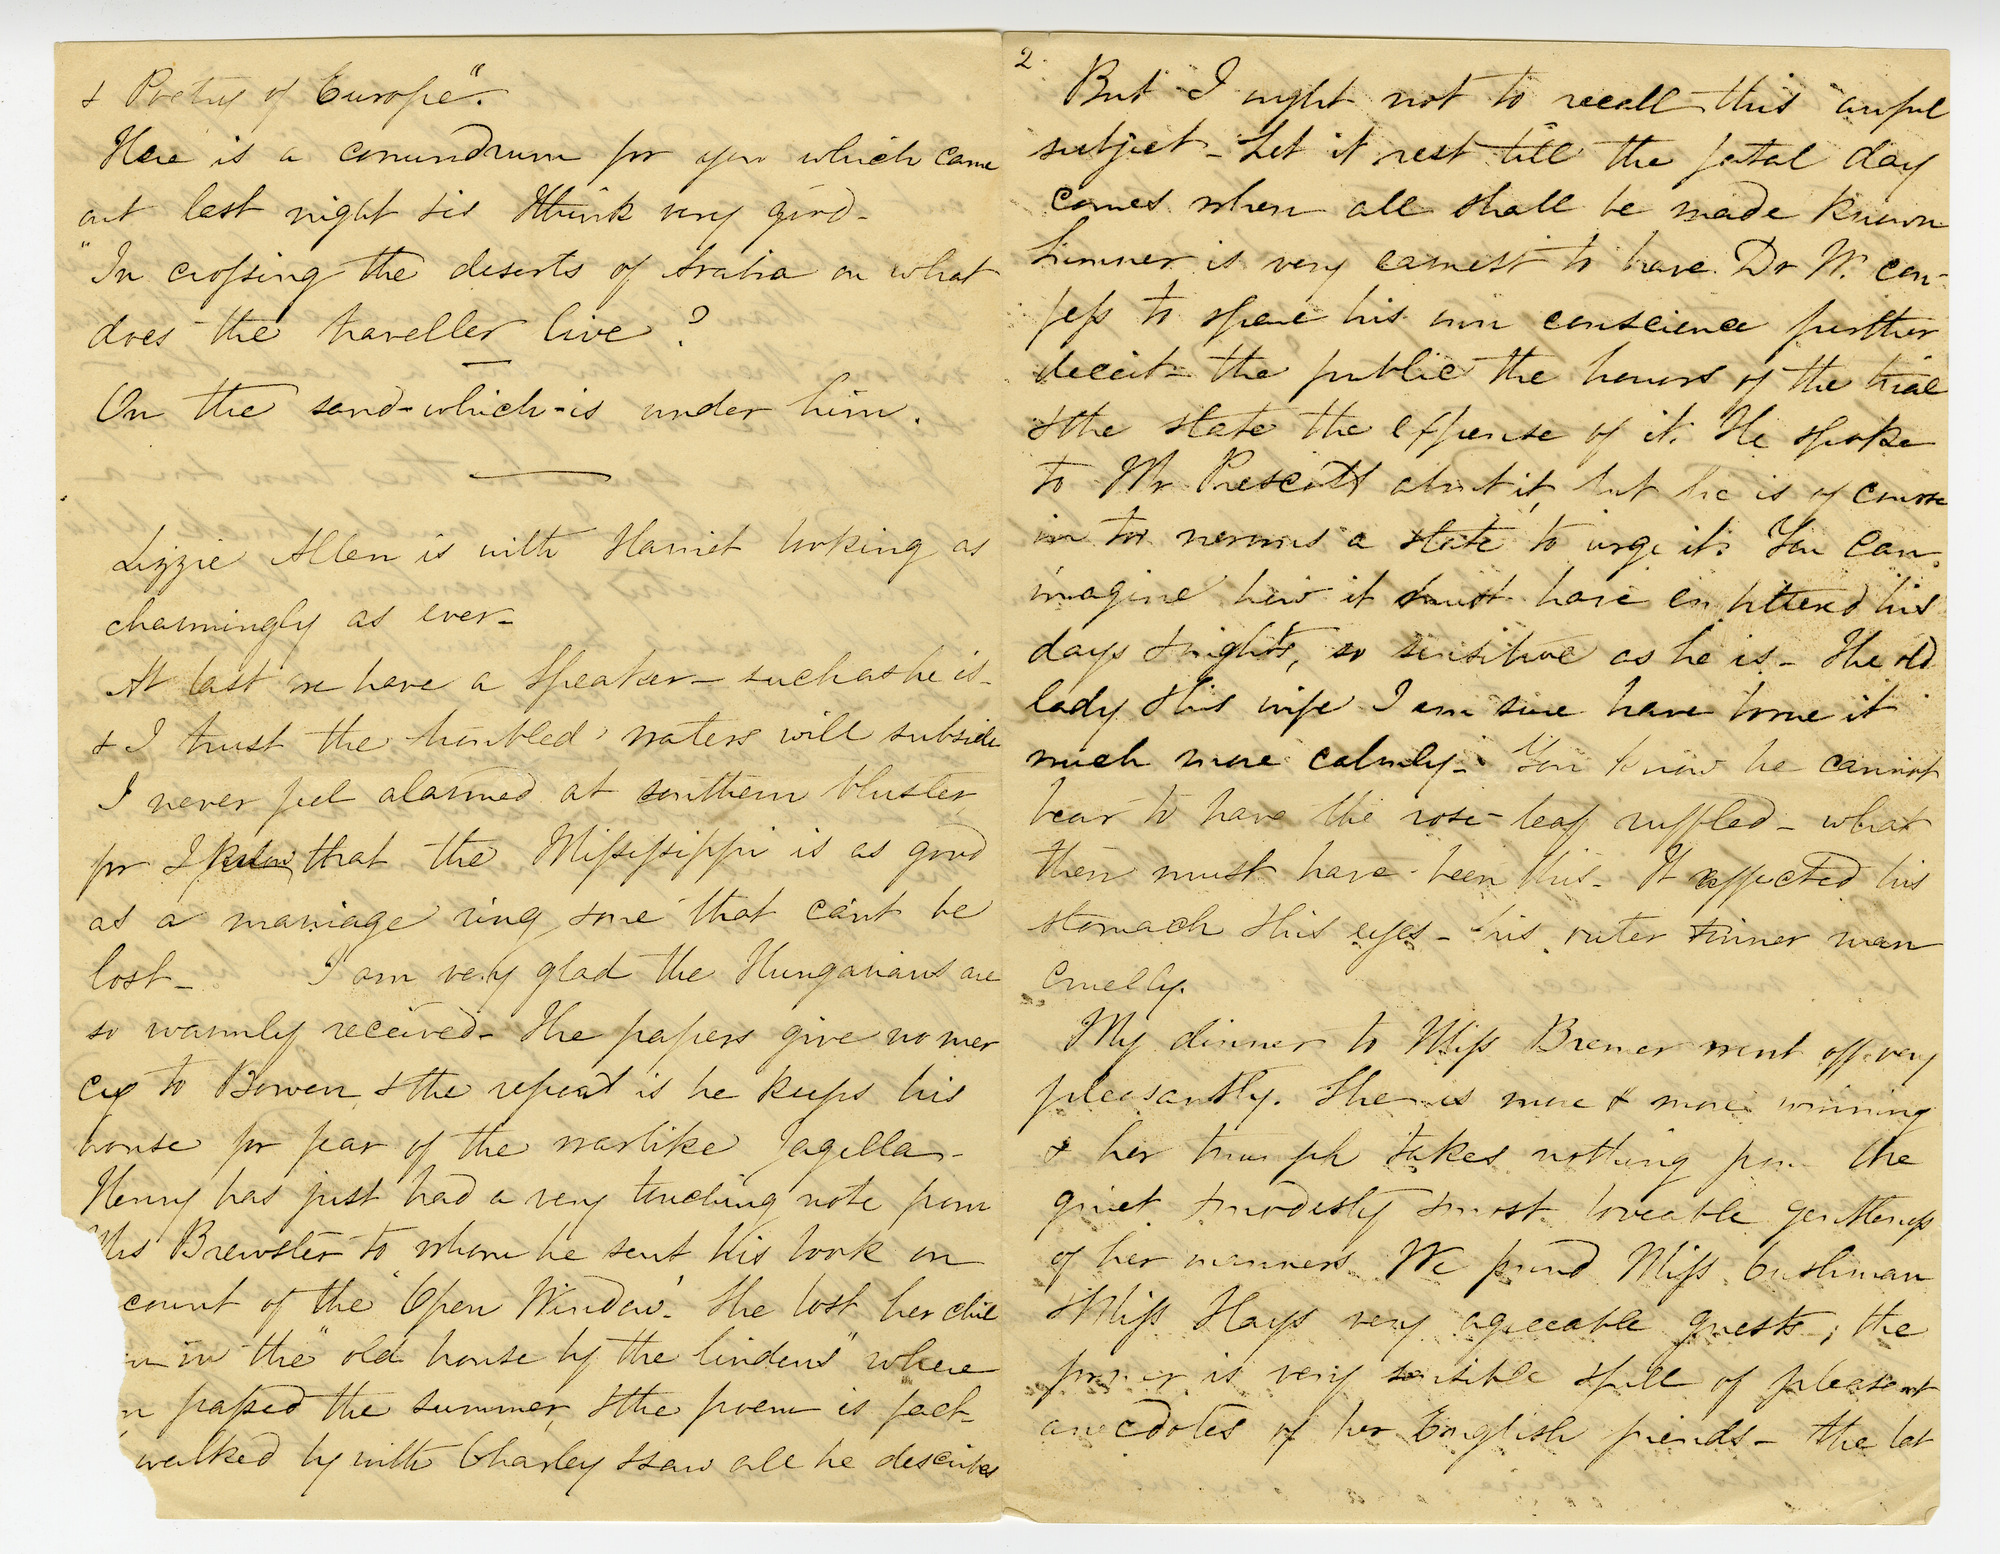 & Poetry of Europe".
Here is a conundrum for you which came
out last night & is I think very good.
"In crossing the deserts of Arabia on what
does the traveller live?
On the sand-which-is under him.
Lizzie Allen is with Harriet looking as
charmingly as ever-
At last we have a Speaker- such as he is-
& I trust the troubled waters will subside
I never feel alarmed at southern bluster
for I know that the Mississippi is as good
as a marriage ring & one that can't be
lost- I am very glad the Hungarians are
so warmly received- The papers give no mer
cy to Bowen & the report is he keeps his
house for fear of the warlike Jagella-
Henry has just had a very touching note from
Mrs Brewster to whom he sent his book on
count of the "Open Window". She lost her chil
in the "old house by the lindens" where
passed the summer, & the poem is fact-
walked by with Charley & saw all he describes
2.
But I ought not to recall this awful
subject- Let it rest till the fatal day
comes when all shall be made known
Sumner is very earnest to have Dr W. con-
fess to spare his own conscience further
deceit- the public the horrors of the trial
& the state the expense of it. He spoke
to Mr Prescott about it, but he is of course
in too nervous a state to urge it. You can
imagine how it must have embittered his
days & nights, so sensitive as he is- The old
lady & his wife I am sure have borne it
much more calmly- You know he cannot
bear to have the rose-leaf ruffled- what
then must have been this- It affected his
stomach & his eyes- his outer & inner man
cruelly.
My dinner to Miss Bremer went off very
pleasantly. She is more & more winning
& her triumph takes nothing from the
quiet & modesty & most loveable gentleness
of her manners. We found Miss Cushman
& Miss Hays very agreeable guests; the
former is very sensible & full of pleasant
anecdotes of her English friends- the lat